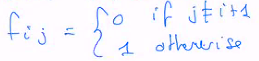 fij = { 0 if j ≠ i+1
1 otherwise